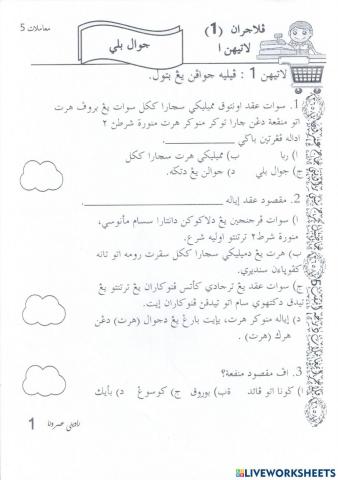 معاملات 5
ڤلاجرن (1)
لاتيهن 1
جوال بلي
لاتيهن 1 : ڤيليه جواڤن يڠ بتول.
1. سوات عقد اونتوق مميليكي سچارا ككل سوات يڠ بروڤ هرت
اتو منفعة دڠن چارا توكر منوكر هرت منورة شرطن٢
اداله ڤڠرتين باݢي ____________.
ا) ربا ب) مميليكي هرت سچارا ككل
ج) جوال بلي د) جوالن يڠ دتݢه.
2. مقصود عقد اياله ____________.
ا) سوات ڤرجنجين يڠ دلاكوكن دانتارا سسام مأنوسي،
منورة شرط٢ ترتنتو اوليه شرع.
ب) هرت يڠ دميليكي سچارا ككل سڤرت رومه اتو تانه
كڤوڽاءن سنديري.
ج) سوات عقد يڠ ترجادي كأتس ڤنوكران يڠ ترتنتو يڠ
تيدق دكتهوي سام اتو تيدقڽ ڤنوكران ايت.
د) اياله منوكر هرت، يأيت بارڠ يڠ دجوال (هرت) دڠن
هرݢ (هرت) .
3. اڤ مقصود منفعة؟
ا) ݢونا اتو فائده ب) بوروق ج) كوسوڠ د) بأيك
1
LIVEWORKSHEETS